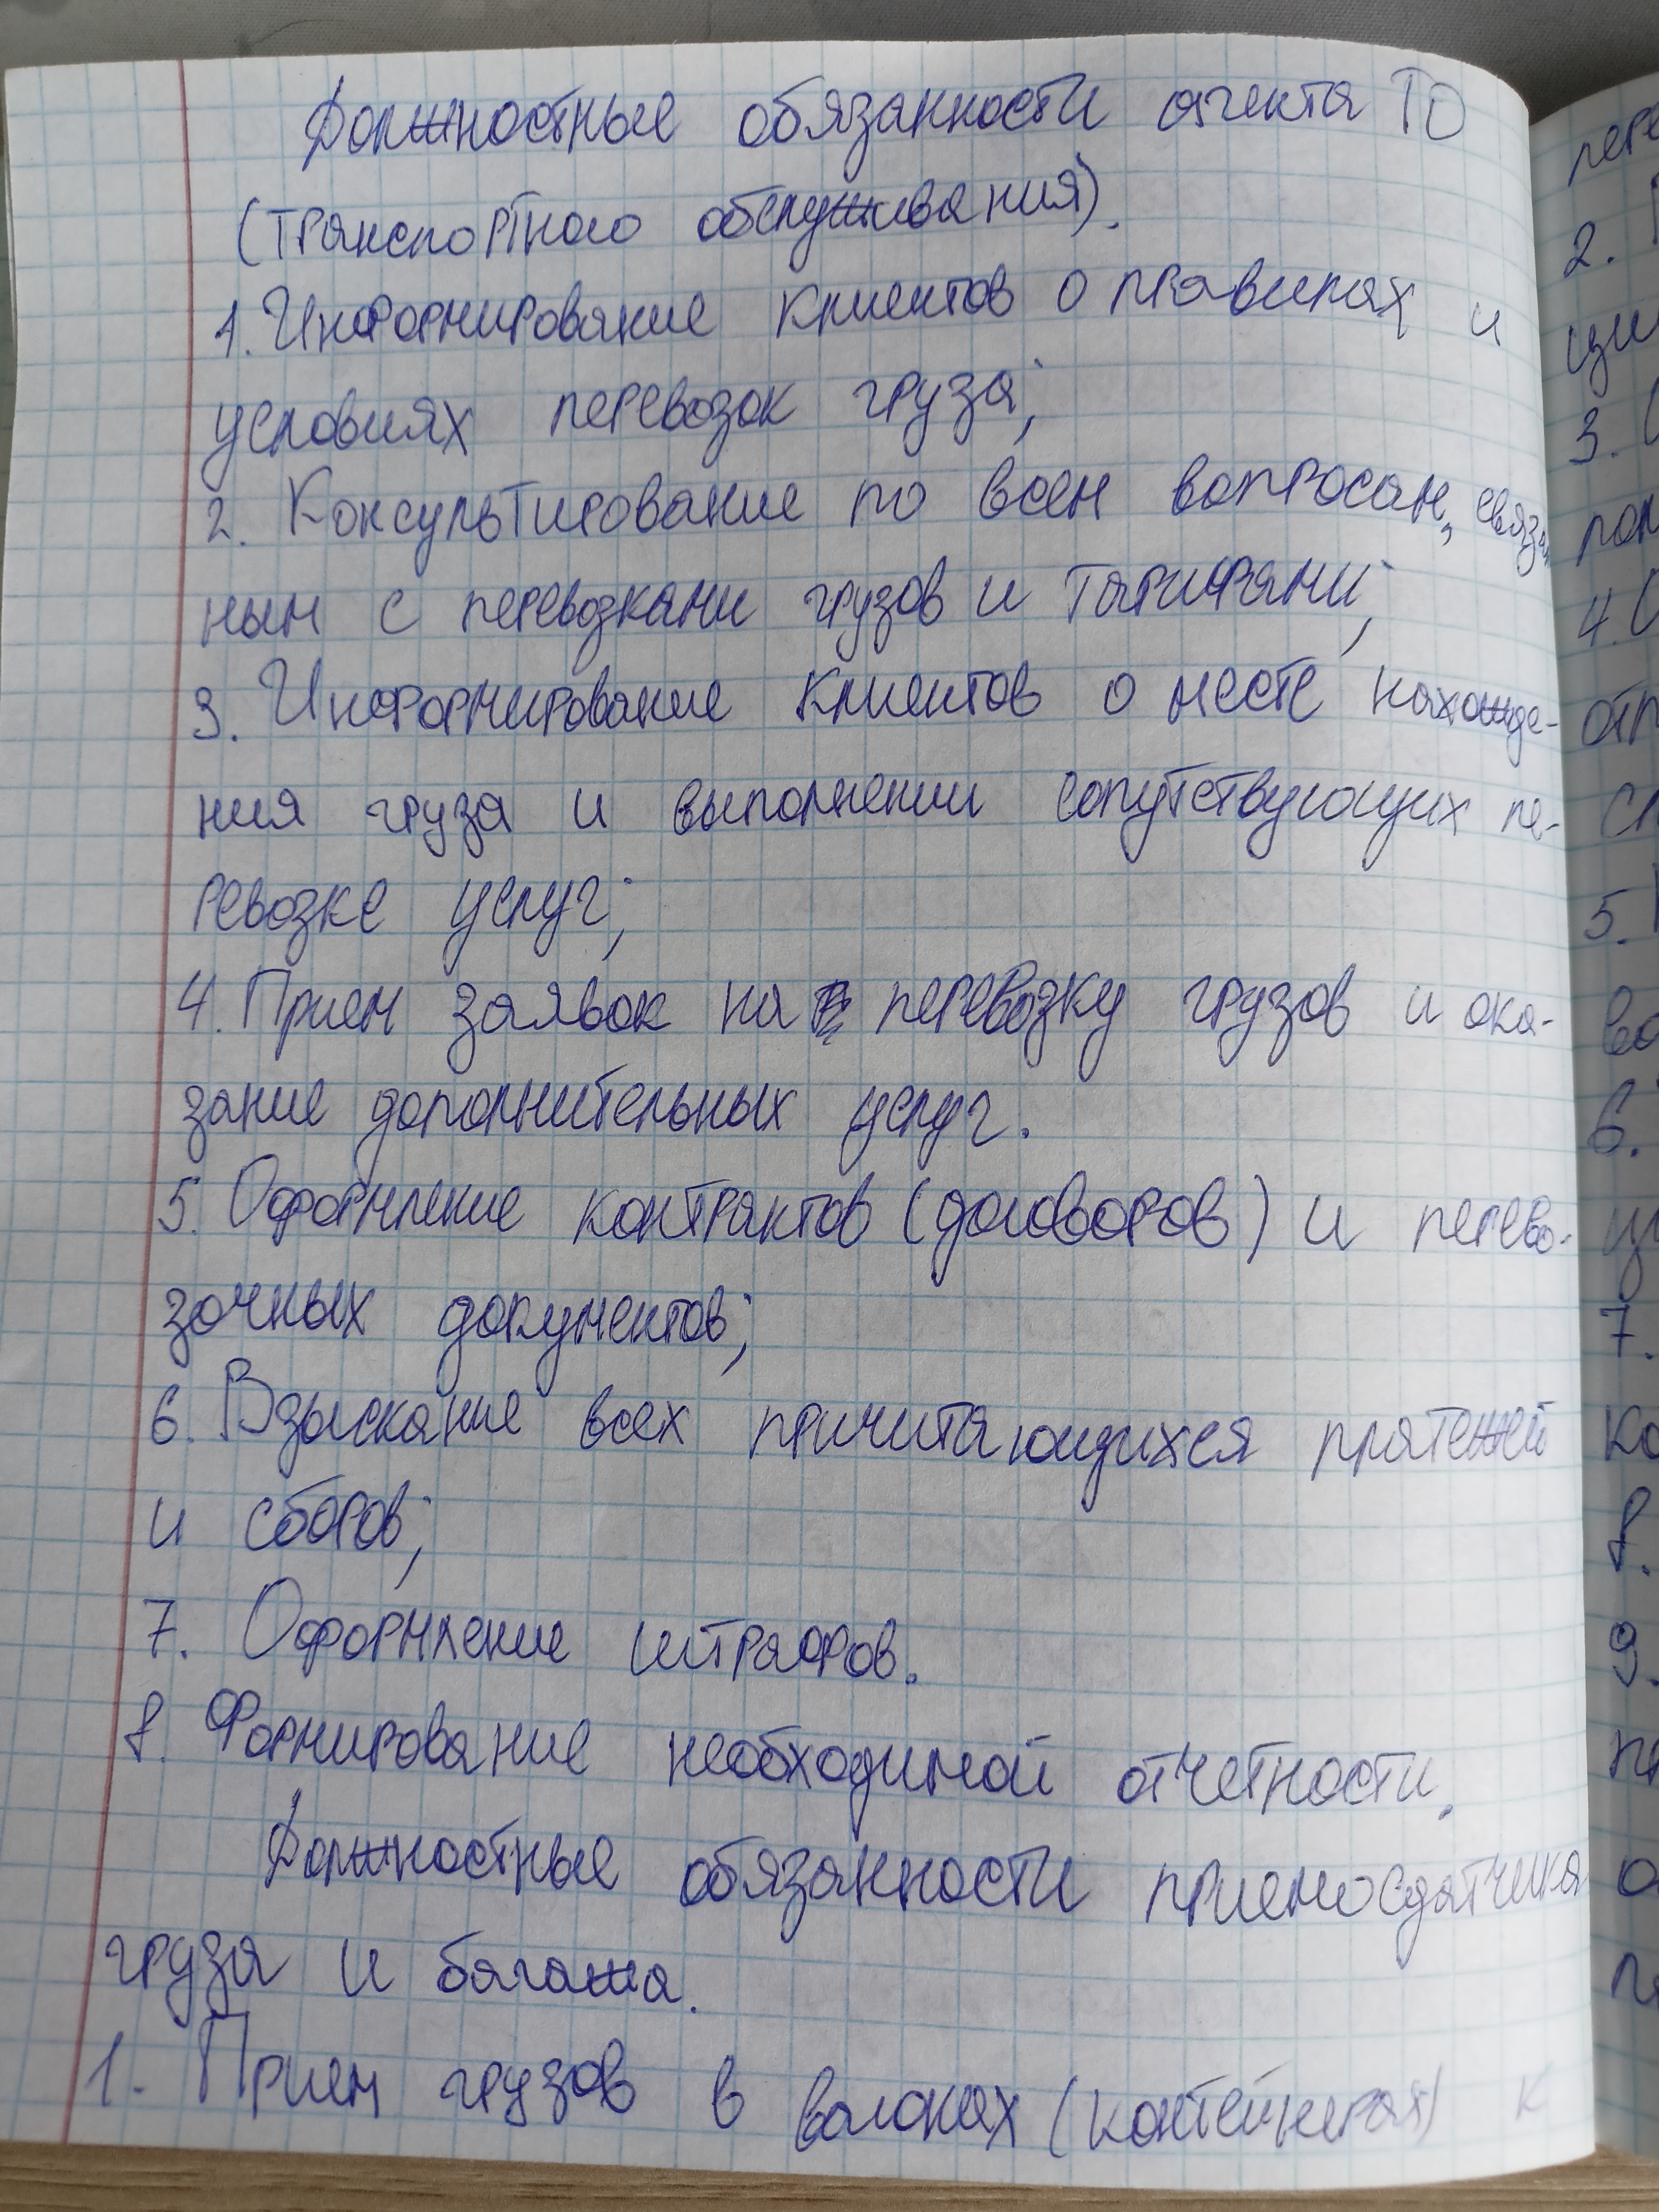 Должностные обязанности агента ТО
(транспортного обслуживания).
1. Информирование клиентов о правилах и
условиях перевозок груза;
2. Консультирование по всем вопросам, связан
ным с перевозками грузов и тарифами;
3. Информирование клиентов о месте нахожде-
ния груза и выполнении сопутствующих пе-
ревозке услуг;
4. Прием заявок на перевозку грузов и ока-
зание дополнительных услуг.
5. Оформление контрактов (договоров) и перево-
зочных документов;
6. Взыскание всех причитающихся платежей
и сборов;
7. Оформление штрафов.
8. Формирование необходимой отчетности.
Должностные обязанности приемосдатчика
груза и багажа.
1. Прием грузов в вагонах (контейнерах) к
2.
3.
4.
5.
6.
7.
8.
9.